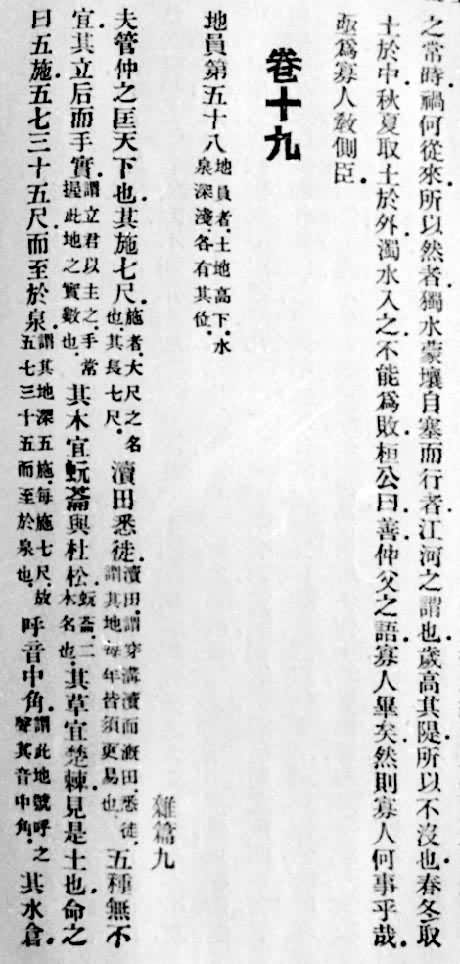 之常時.禍何從來.所以然者.獨水蒙壤自塞而行者.江河之謂也.歲高其隄.所以不沒也.春冬取
土於中.秋夏取土於外.濁水入之.不能爲敗.桓公曰.善.仲父之語寡人畢矣.然則寡人何事乎哉.
亟爲寡人敎側臣.
卷十九
地員第五十八 地員者.土地高下.水泉深淺.各有其位.
雜篇九
夫管仲之匡天下也.其施七尺.施者.大尺之名也.其長七尺.瀆田悉徙.瀆田.謂穿溝瀆而漑田.悉徙.謂其地每年皆須更易也.五種無不
宜.其立后而手實.謂立君以主之.手常握此地之實數也.其木宜蚖菕與杜松.蚖菕.二木名也.其草宜楚棘.見是土也.命之
曰五施.五七三十五尺.而至於泉.謂其地深五施.每施七尺.故五七三十五而至於泉也.呼音中角.謂此地號呼之聲.其音中角.其水倉.